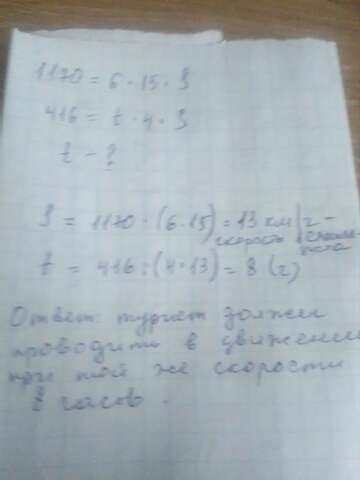 1170 = 6 · 15 · S
416 = t · 4 · S
t - ?
S = 1170 : (6 · 15) = 13 км/ч -
скорость
t = 416 : (4 · 13) = 8 (ч)
Ответ: турист должен
проводить в движении
при той же скорости
8 часов.